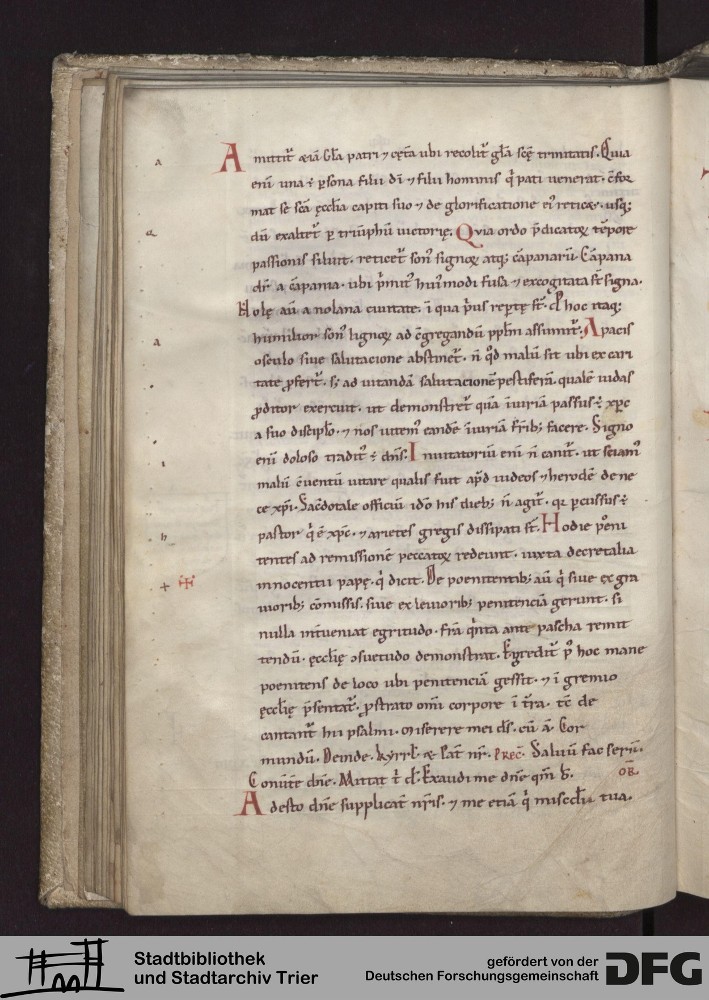 Amittit᷒ & iā Gl̄a patri ⁊ cęta ubi recolit᷒ gl̄a scę trinitatis. Quia
enī una ē ꝑsona filii dī ⁊ filii hominis q̇ pati uenerat. c̄for
mat se scā ęccl̄ia capiti suo ⁊ de glorificatione ei᷒ reticꝫ. usqꝫ
dū exaltet᷒ ꝑ triūphū uictorię. Quia ordo p̄dicatoꝝ tēpore
passionis siluit. reticet᷒ son᷒ signoꝝ atqꝫ cāpanarū. Cāpana
dr̄ a cāpania. ubi p̄mit᷒ hui᷒modi fusa ⁊ excogitata st̄ signa.
Nolę aū a nolana ciuitate. ī qua p̄us reꝑtę st̄. ꝓ hoc itaqꝫ
humilior son᷒ lignoꝝ ad c̄gregandū ppl̄m assumit᷒. A pacis
osculo siue salutacione abstinet᷒. n̄ qd̄ malū sit ubi ex cari
tate ꝓfert᷒. sꝫ ad uitandā salutacionē pestiferā. qualē iudas
ꝓditor exercuit. ut demonstret᷒ quā iniuriā passus ē xp̄c
a suo discipl̄o. ⁊ nos uitem᷒ eandē iniuriā fr̄ibꝫ facere. Signo
enī doloso tradit᷒ ē dn̄s. Inuitatoriū enī n̄ canit᷒. ut sciam᷒
malū c̄uentū uitare qualis fuit apd̄ iudeos ⁊ herodē de ne
ce xp̄i. Sac̄dotale officiū ido his diebꝫ n̄ agit᷒. qr ꝑcussus ē
pastor q̇ ē xp̄c. ⁊ arietes gregis dissipati st̄. Hodie pęni
tentes ad remissionē peccatoꝝ redeunt. iuxta decretalia
innocentii papę. q̇ dicit. De poenitentibꝫ aū q̇ siue ex gra
uioribꝫ cōmissis. siue ex leuioribꝫ penitenciā gerunt. si
nulla int̄ueniat egritudo. fr̄ia q̇nta ante pascha remit
tendū. ęccl̄ię ↄsuetudo demonstrat. Egredit᷒ p᷒ hoc mane
poenitens de loco ubi penitenciā gessit. ⁊ ī gremio
ęccl̄ię p̄sentat᷒. ꝓstrato omī corpore ī t̄ra. tc̄ de
cantant᷒ hii psalmi. Miserere mei ds̄. cū a. Cor
mundū. Deinde. kyrrl̄. & Pat̄ nr̄. PREC. Saluū fac seruū.
Conūte dn̄e. Mittat t̄ d. Exaudi me dn̄e qm̄ b̄. OR.
Adesto dn̄e supplicat n̄ris. ⁊ me etiā q̇ misc̄dia tua.
Stadtbibliothek
und Stadtarchiv Trier
gefördert von der
Deutschen Forschungsgemeinschaft
DFG